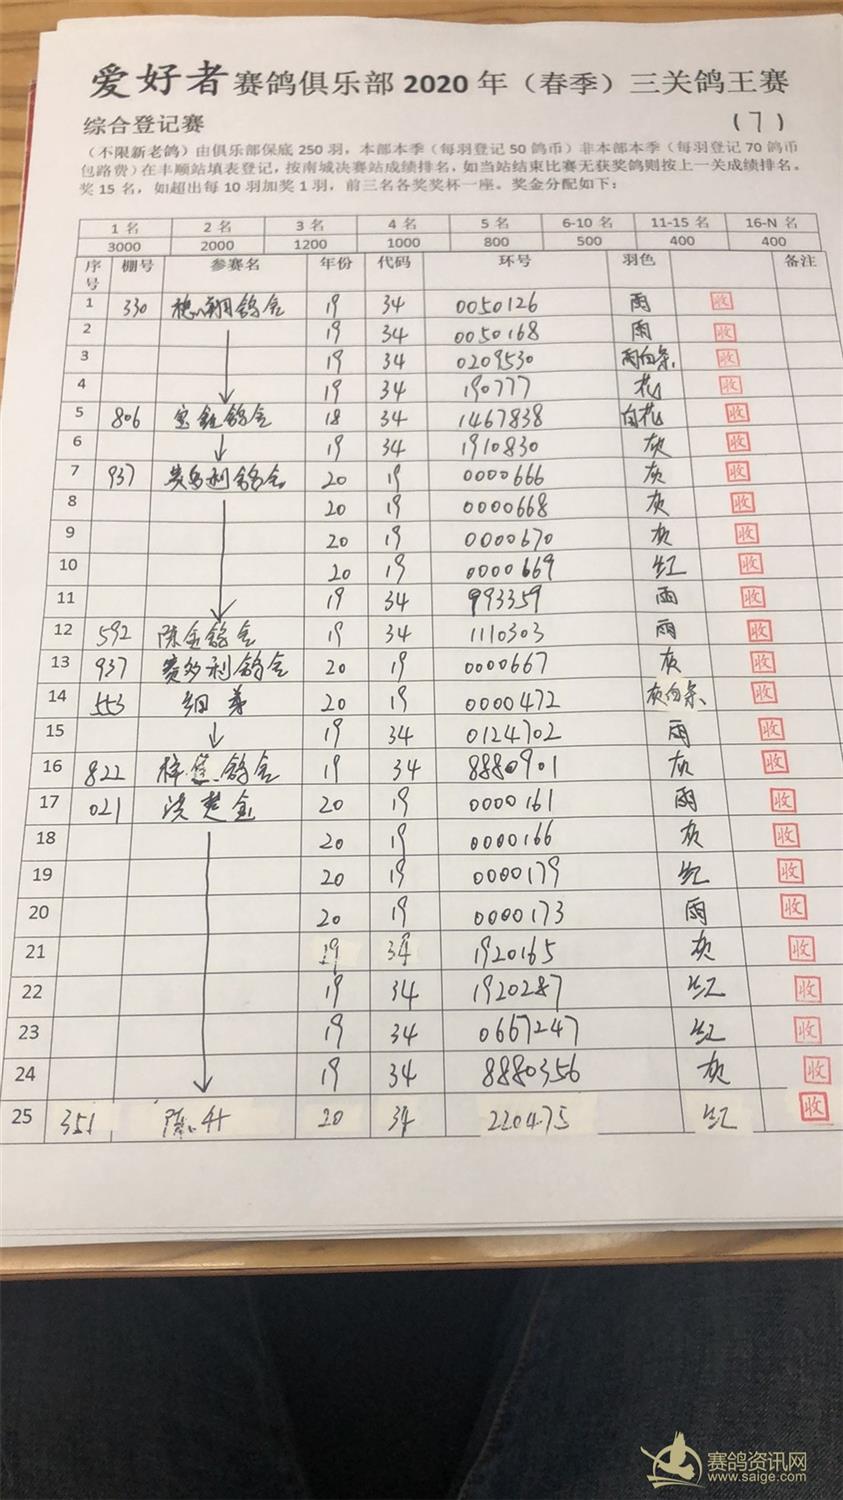 爱好者赛鸽俱乐部2020年（春季）三关鸽王赛
综合登记赛 (7)
（不限新老鸽）由俱乐部保底250羽，本部本季（每羽登记50鸽币）非本部本季（每羽登记70鸽币
包路费）在丰顺站填表登记，按南城决赛站成绩排名，如当站结束比赛无获奖鸽则按上一关成绩排名。
奖15名，如超出每10羽加奖1羽，前三名各奖奖杯一座。奖金分配如下：
1名 2名 3名 4名 5名 6-10名 11-15名 16-N名
3000 2000 1200 1000 800 500 400 400
序号 棚号 参赛名 年份 代码 环号 羽色 备注
1 330 鸽舍 19 34 0050126 雨 收
2 19 34 0050168 雨 收
3 19 34 0209530 雨白条 收
4 19 34 190777 花 收
5 806 鸽舍 18 34 1467838 白花 收
6 19 34 1910830 灰 收
7 937 赛多利鸽舍 20 19 0000666 灰 收
8 20 19 0000668 灰 收
9 20 19 0000670 灰 收
10 20 19 0000669 红 收
11 19 34 993359 雨 收
12 592 陈金鸽舍 19 34 1110303 雨 收
13 937 赛多利鸽舍 20 19 0000667 灰 收
14 553 细弟 20 19 0000472 灰白条 收
15 19 34 0124702 雨 收
16 822 鸽舍 19 34 8880901 灰 收
17 021 洪楚金 20 19 0000161 雨 收
18 20 19 0000166 灰 收
19 20 19 0000179 红 收
20 20 19 0000173 雨 收
21 19 34 1920165 灰 收
22 19 34 1920287 红 收
23 19 34 0667247 红 收
24 19 34 8880356 灰 收
25 351 陈 20 34 220475 红 收
赛鸽资讯网
www.saige.com